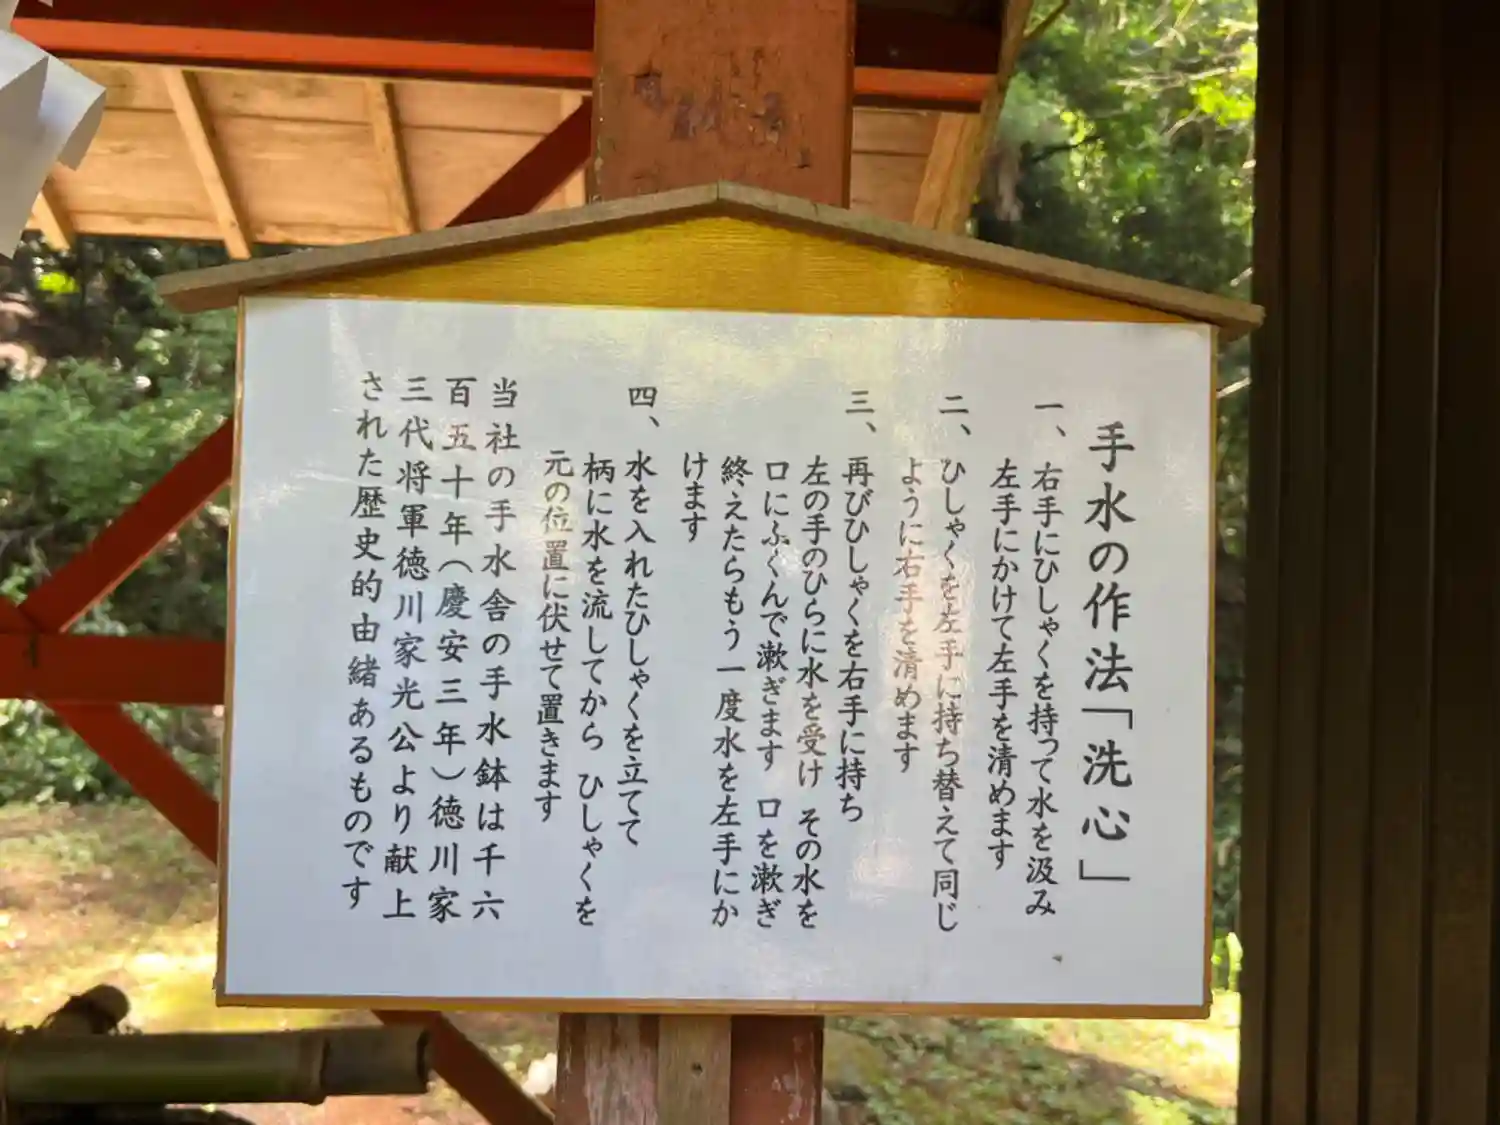 手水の作法「洗心」
一、右手にひしゃくを持って水を汲み
左手にかけて左手を清めます
二、ひしゃくを左手に持ち替えて同じ
ように右手を清めます
三、再びひしゃくを右手に持ち
左の手のひらに水を受け その水を
口にふくんで漱ぎます 口を漱ぎ
終えたらもう一度水を左手にか
けます
四、水を入れたひしゃくを立てて
柄に水を流してから ひしゃくを
元の位置に伏せて置きます
当社の手水舎の手水鉢は千六
百五十年（慶安三年）徳川家
三代将軍徳川家光公より献上
された歴史的由緒あるものです